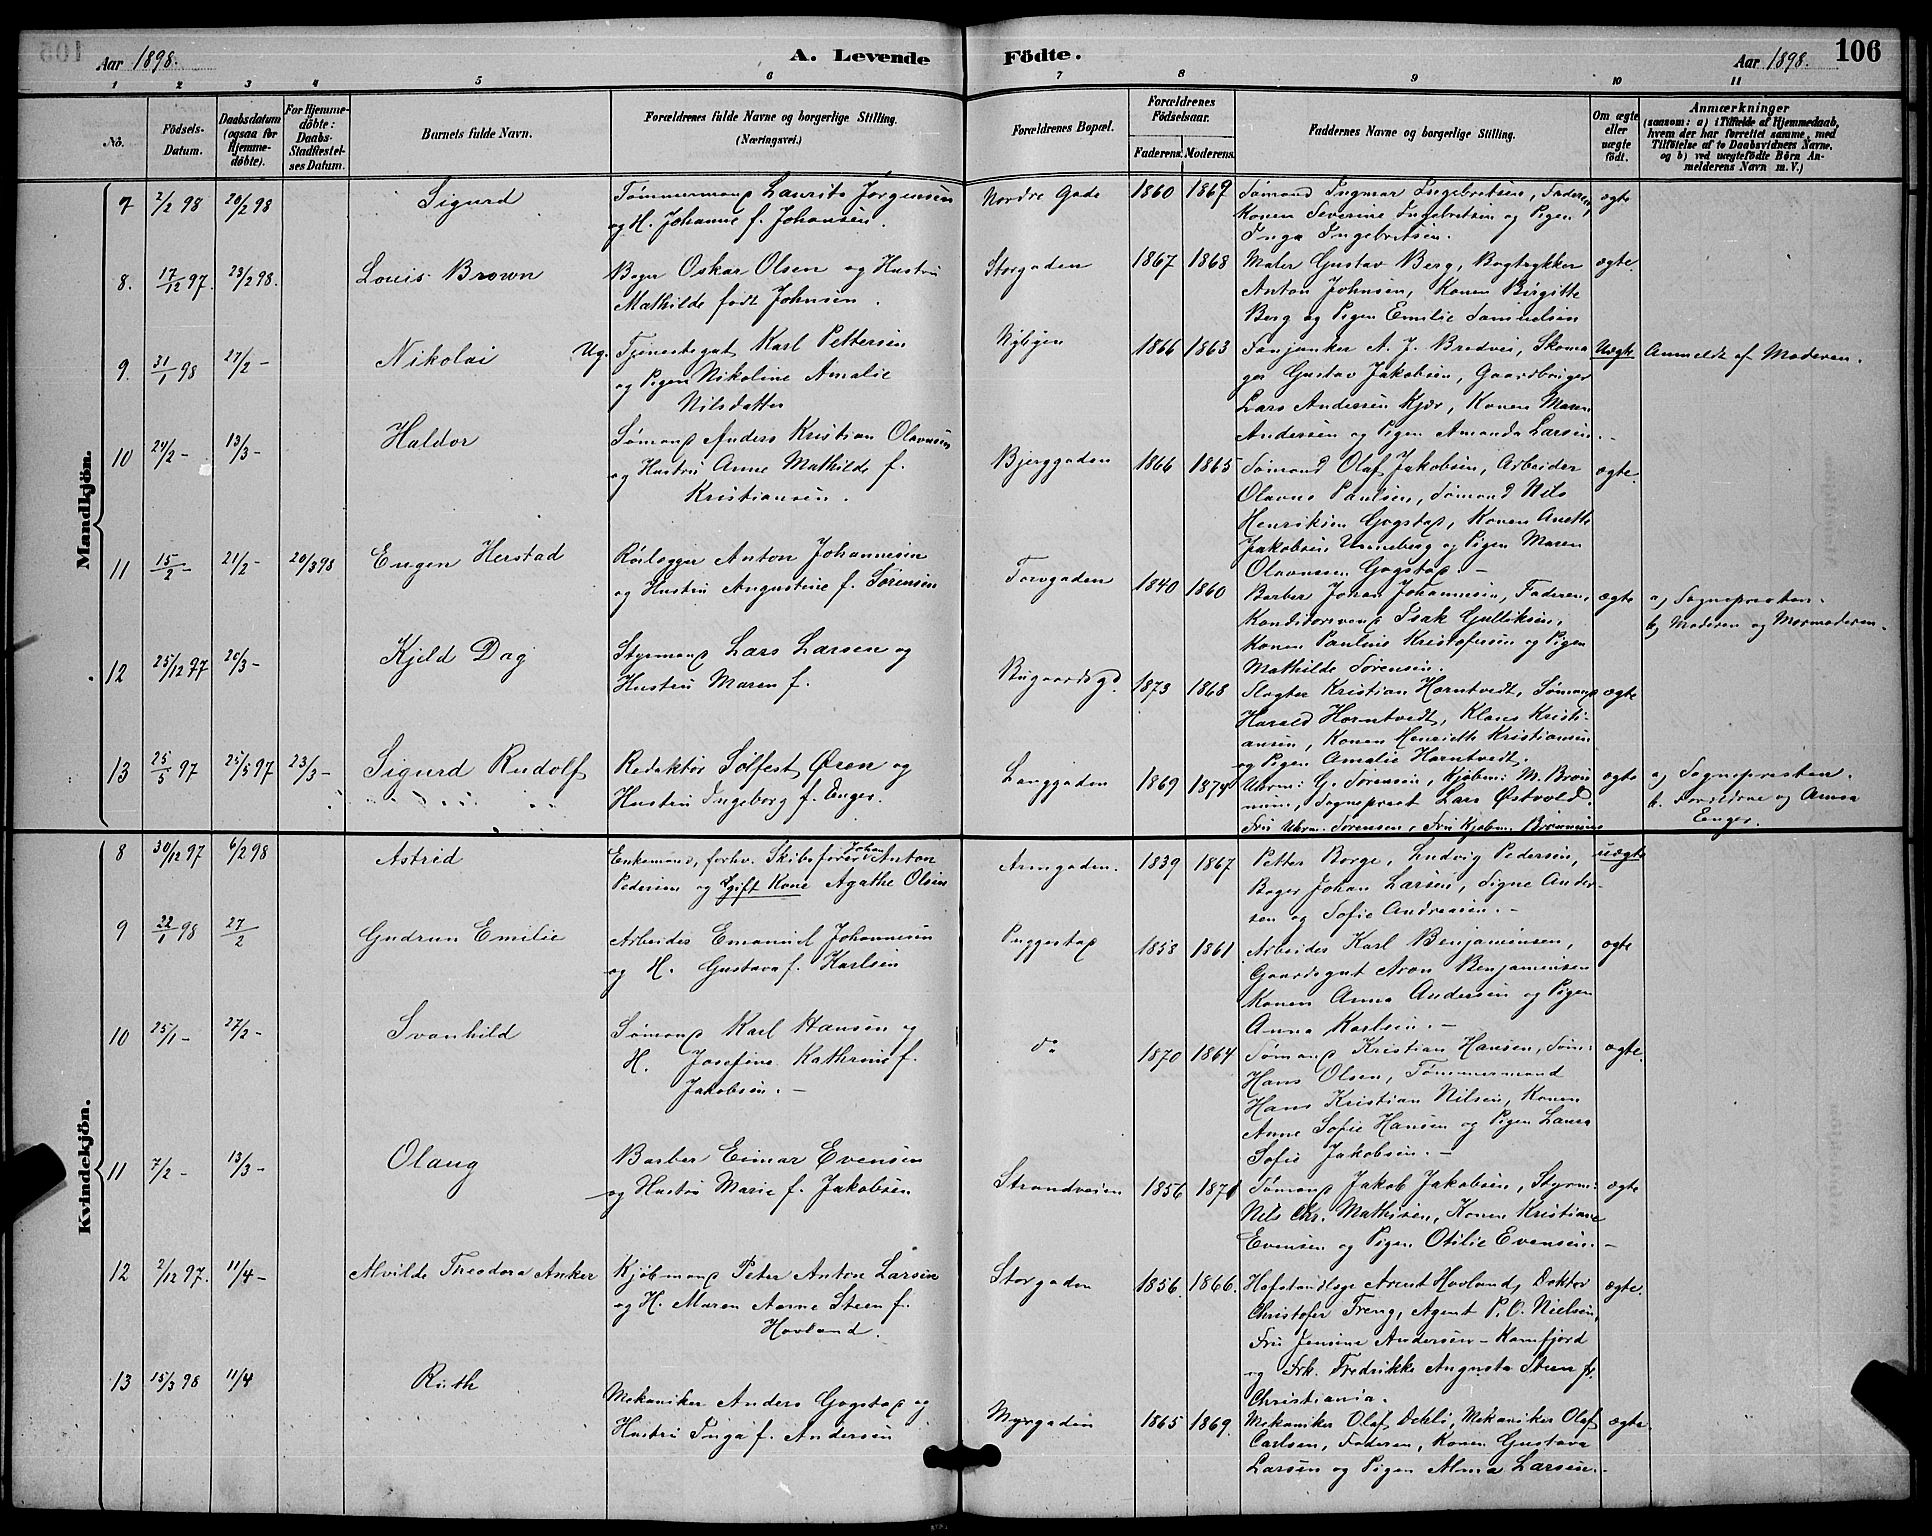 Aar 1898.
A. Levende
Födte.
Aar 1898.
106
1 2 3 4 5 6 7 8 9 10 11
No.
Födsels-Datum.
Daabsdatum (ogsaa for Hjemme-döbte).
For Hjemme-döbte: Daabs-Stadfæstel-ses Datum.
Barnets fulde Navn.
Forældrenes fulde Navne og borgerlige Stilling.
(Næringsvei.)
Forældrenes Bopæl.
Forældrenes Födselsaar.
Faderens. Moderens.
Faddernes Navne og borgerlige Stilling.
Om ægte eller uægte födt.
Anmærkninger
(saasom: a) i Tilfælde af Hjemmedaab,
hvem der har forrettet samme, med
Tilföielse af to Daabsvidners Navne,
og b) ved uægtefödte Börn An-
melderens Navn m. V.)
Mandkjön.
7 2/2 98 20/2 98 Sigurd
Tømmermand Laurits Jørgensen
og H. Johanne f. Johansen.
Nordre Gade 1860 1869
Sømand Ingmar Ingebretsen, Faderen,
Konen Severine Ingebretsen og Pigen
Inga Ingebretsen.
ægte
8. 17/12 97. 23/2 98. Louis Brown
Bager Oskar Olsen og Hustru
Mathilde født Johnsen.
Storgaden 1867 1868
Maler Gustav Berg, Bogtrykker
Anton Johnsen, Konen Birgitte
Berg og Pigen Emilie Samuelsen
ægte.
9. 31/1 98 27/2 - Nikolai Ug.
Tjenestegut Karl Pettersen
og Pigen Nikoline Amalie
Nilsdatter
Nybyen 1866 1863
Fanjunker A. J. Bredvei, Skoma
ger Gustav Jakobsen, Gaardbruger
Lars Andersen Kjær, Konen Maren
Andersen og Pigen Amanda Larsen. -
Uægte
Anmeldt af Moderen.
10 24/2 - 13/3 - Haldor
Sømand Anders Kristian Olavsen
og Hustru Anne Mathilde f.
Kristiansen.
Bjerggaden 1866 1865
Sømand Olaf Jakobsen, Arbeider
Olavus Paulsen, Sømand Nils
Henriksen Gogstad, Konen Anette
Jakobsen Unneberg og Pigen Maren
Olavsen Gogstad. -
ægte.
11 15/2 - 21/2 - 20/3 98 Eugen Herstad
Rørlægger Anton Johannesen
og Hustru Augustine f. Sørensen
Torvgaden 1840 1860
Barber Johan Johannesen, Faderen,
Konditorsvend Isak Gulliksen,
Konen Pauline Kristofersen og Pigen
Mathilde Sørensen.
ægte
a) Sognepresten.
b) Moderen og Mormoderen.
12 25/12 97 20/3 - Kjeld Dag
Styrmand Lars Larsen og
Hustru Maren f.
Bugaardsgd. 1873 1868
Slagter Kristian Horntvedt, Sømand
Harald Horntvedt, Klaus Kristi-
ansen, Konen Henriette Kristiansen
og Pigen Amalie Horntvedt.
ægte
13 25/5 97 25/5 97 23/3 - Sigurd Rudolf
Redaktør Solfest Øren og
Hustru Ingeborg f. Enger.
Langgaden 1869 1874
Uhrm: G. Sørensen, Kjøbm: M. Brøn
num, Sogneprest Lars Østvold.
Fru Uhrm. Sørensen, Fru Kjøbm. Brønnum
ægte
a) Sognepresten.
b. Forældrene og Anna
Enger.
Kvindekjön.
8 30/12 97 6/2 98 Astrid
Enkemand, forhv. Skibsfører Johan Anton
Pedersen og gift Kone Agathe Olsen
Armgaden. 1839 1867
Petter Borge, Ludvig Pedersen,
Bager Johan Larsen, Signe Ander-
sen og Sofie Andresen. -
uægte
9 22/1 98 27/2 Gudrun Emilie
Arbeider Emanuel Johannesen
og H. Gustava f. Karlsen
Puggestad 1858 1861
Arbeider Karl Benjaminsen,
Gaardsgut Aron Benjaminsen
Konen Anna Andersen og Pigen
Anna Karlsen. -
ægte
10 25/1 - 27/2 - Svanhild
Sømand Karl Hansen og
H. Josefine Kathrine f.
Jakobsen. -
do 1870 1864
Sømand Kristian Hansen, Søm:
Hans Olsen, Tømmermand
Hans Kristian Nilsen, Konen
Anne Sofie Hansen og Pigen Laura
Sofie Jakobsen. -
ægte.
11 7/2 - 13/3 - Olaug
Barber Eimar Evensen
og Hustru Marie f. Jakobsen
Strandveien 1856 1871
Sømand Jakob Jakobsen, Styrm:
Nils Chr. Mathisen, Konen Kristiane
Evensen og Pigen Otilie Evensen. -
ægte
12 2/12 97. 11/4 - Alvilde Theodora Anker
Kjøbmand Peter Anton Larsen
og H. Maren Anne Steen f.
Hovland.
Storgaden 1856. 1866.
Hofstandlæge Arent Hovland, Doktor
Christofer Treng, Agent P. O. Nielsen,
Fru Jensine Andersen - Kamfjord
og Frk. Fredrikke Augusta Steen fr.
Christiania.
ægte.
13 15/3 98 11/4 Ruth
Mekaniker Anders Gogstad og
Hustru Inga f. Andersen
Myrgaden 1865 1869.
Mekaniker Olaf Dehli, Mekaniker Olaf
Carlsen, Faderen, Konen Gustava
Larsen og Pigen Alma Larsen. -
ægte